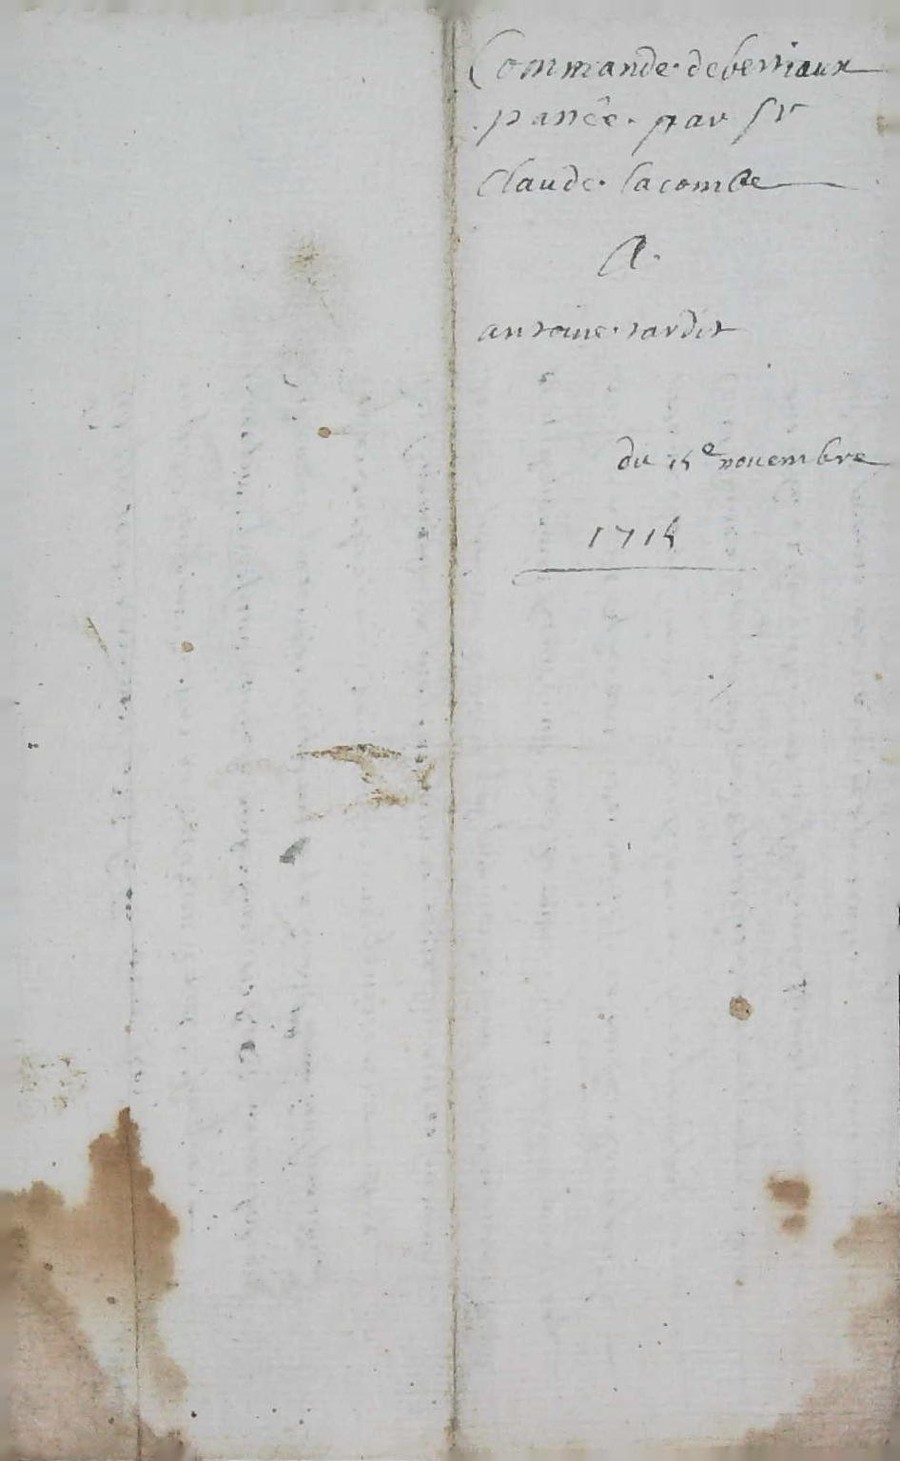 Commande de bestiaux
passée par Sr
Claude Lacombe
A
antoine tardit
du 15e nouembre
1715